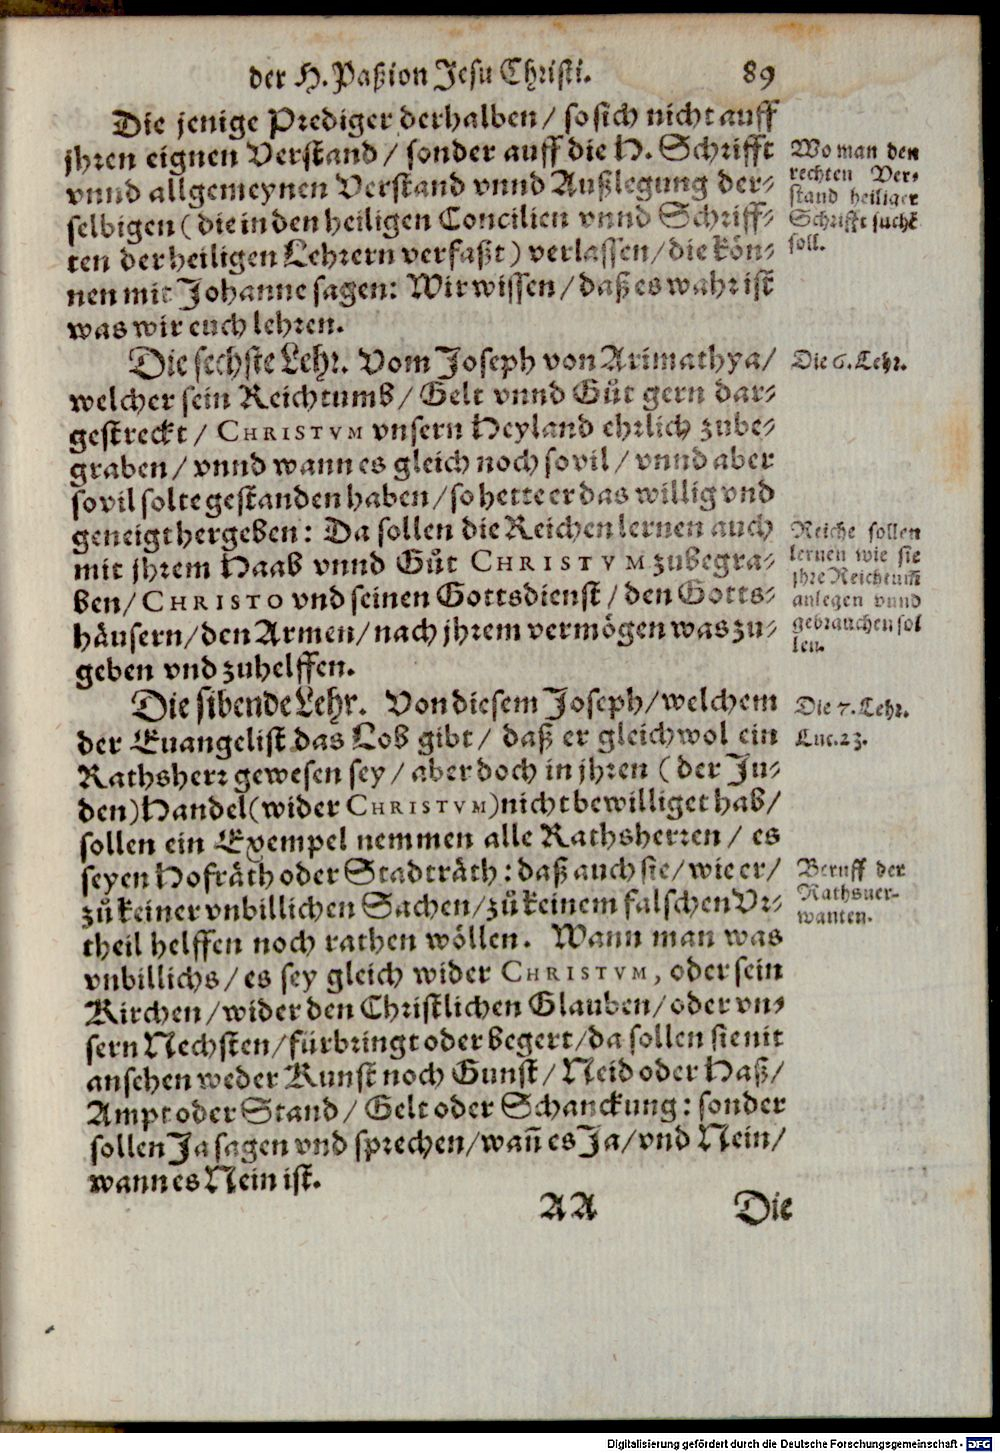 der H. Paßion Jesu Christi. 89
Die jenige Prediger derhalben / so sich nicht auff
jhren eignen Verstand / sonder auff die H. Schrifft
vnnd allgemeynen Verstand vnnd Außlegung der-
selbigen ( die in den heiligen Concilien vnnd Schriff-
ten der heiligen Lehrern verfaßt ) verlassen / die kön-
nen mit Johanne sagen: Wir wissen / daß es wahr ist
was wir euch lehren.
Wo man den
rechten Ver-
stand heiliger
Schrifft sucht
soll.
Die sechste Lehr. Vom Joseph von Arimathya /
welcher sein Reichtumb / Gelt vnnd Gůt gern dar-
gestreckt / CHRISTVM vnsern Heyland ehrlich zube-
graben / vnnd wann es gleich noch sovil / vnnd aber
sovil solte gestanden haben / so hette er das willig vnd
geneigt hergeben: Da sollen die Reichen lernen auch
mit jhrem Haab vnnd Gůt CHRISTVM zubegra-
ben / CHRISTO vnd seinen Gottsdienst / den Gotts-
häusern / den Armen / nach jhrem vermögen was zu-
geben vnd zuhelffen.
Die 6. Lehr.
Reiche sollen
lernen wie sie
jhre Reichtum̃
anlegen vnnd
gebrauchen sol
len.
Die sibende Lehr. Von diesem Joseph / welchem
der Euangelist das Lob gibt / daß er gleichwol ein
Rathsherr gewesen sey / aber doch in jhren ( der Ju-
den) Handel (wider CHRISTVM) nicht bewilliget hab /
sollen ein Exempel nemmen alle Rathsherren / es
seyen Hofräth oder Stadträth: daß auch sie / wie er /
zů keiner vnbillichen Sachen / zů keinem falschen Vr-
theil helffen noch rathen wöllen. Wann man was
vnbillichs / es sey gleich wider CHRISTVM, oder sein
Kirchen / wider den Christlichen Glauben / oder vn-
sern Nechsten / fürbringt oder begert / da sollen sie nit
ansehen weder Kunst noch Gunst / Neid oder Haß /
Ampt oder Stand / Gelt oder Schanckung: sonder
sollen Ja sagen vnd sprechen / wañ es Ja / vnd Nein /
wann es Nein ist.
Die 7. Lehr.
Luc. 23.
Beruff der
Rathsuer-
wanten.
AA Die
Digitalisierung gefördert durch die Deutsche Forschungsgemeinschaft - DFG